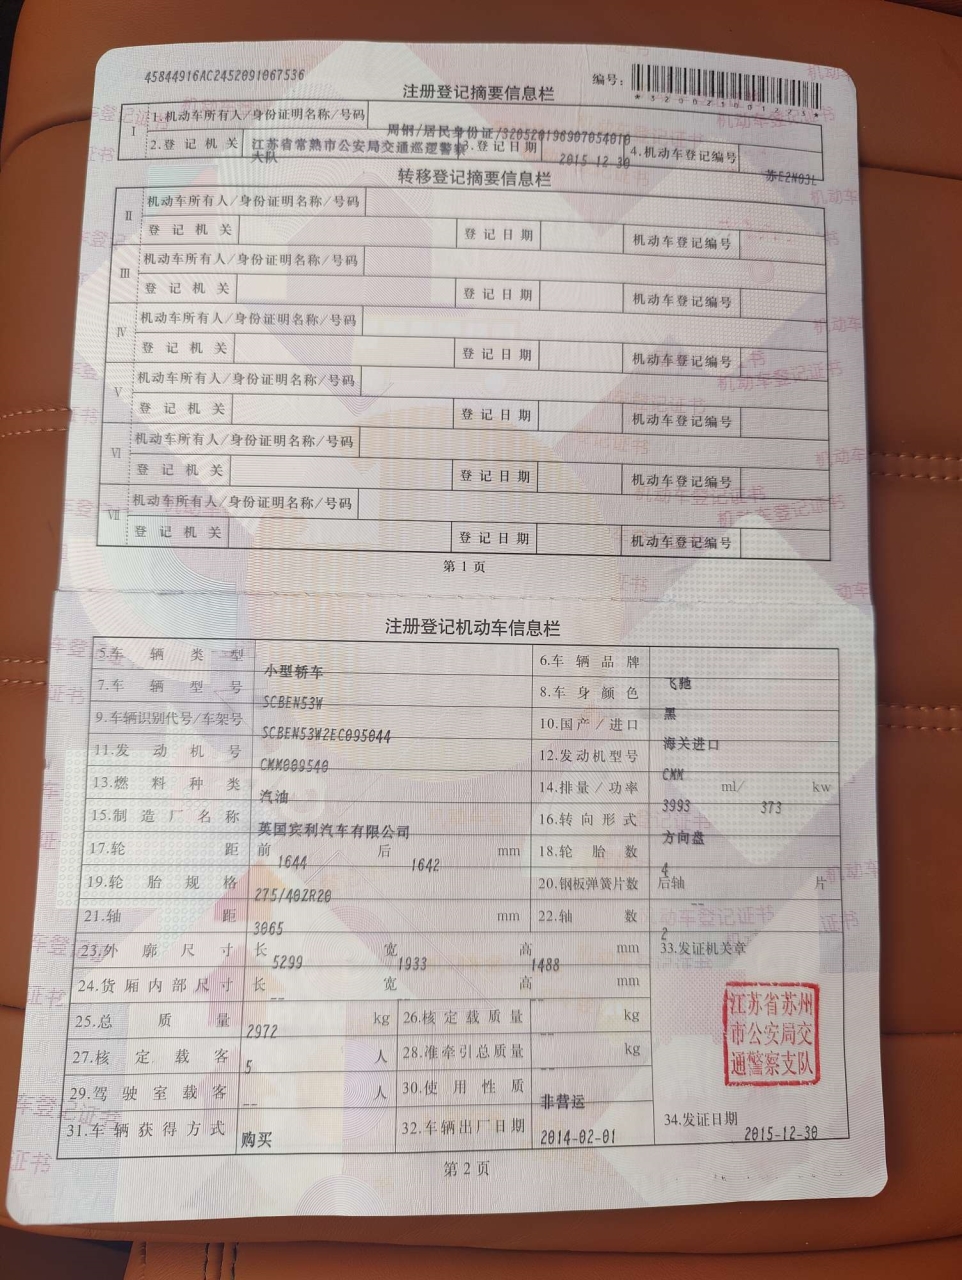 45844916AC2452091067536
注册登记摘要信息栏
编号:
I
1.机动车所有人/身份证明名称/号码 周钢/居民身份证/320520196907054010
2.登记机关 江苏省常熟市公安局交通巡逻警察大队 3.登记日期 2015-12-30 4.机动车登记编号 苏E2N03L
转移登记摘要信息栏
II 机动车所有人/身份证明名称/号码
登记机关 登记日期 机动车登记编号
III 机动车所有人/身份证明名称/号码
登记机关 登记日期 机动车登记编号
IV 机动车所有人/身份证明名称/号码
登记机关 登记日期 机动车登记编号
V 机动车所有人/身份证明名称/号码
登记机关 登记日期 机动车登记编号
VI 机动车所有人/身份证明名称/号码
登记机关 登记日期 机动车登记编号
VII 机动车所有人/身份证明名称/号码
登记机关 登记日期 机动车登记编号
第1页
注册登记机动车信息栏
5.车辆类型 小型轿车 6.车辆品牌 飞驰
7.车辆型号 SCBEN53W 8.车身颜色 黑
9.车辆识别代号/车架号 SCBEN53W2EC095044 10.国产/进口 海关进口
11.发动机号 CMM009540 12.发动机型号 CMM
13.燃料种类 汽油 14.排量/功率 3993 ml/ 373 kw
15.制造厂名称 英国宾利汽车有限公司 16.转向形式 方向盘
17.轮距 前 1644 后 1642 mm 18.轮胎数 4
19.轮胎规格 275/40ZR20 20.钢板弹簧片数 后轴 -- 片
21.轴距 3065 mm 22.轴数 2
23.外廓尺寸 长 5299 宽 1933 高 1488 mm 33.发证机关章
24.货厢内部尺寸 长 -- 宽 -- 高 -- mm
25.总质量 2972 kg 26.核定载质量 -- kg
27.核定载客 5 人 28.准牵引总质量 -- kg
29.驾驶室载客 -- 人 30.使用性质 非营运
31.车辆获得方式 购买 32.车辆出厂日期 2014-02-01 34.发证日期 2015-12-30
江苏省苏州
市公安局交
通警察支队
第2页